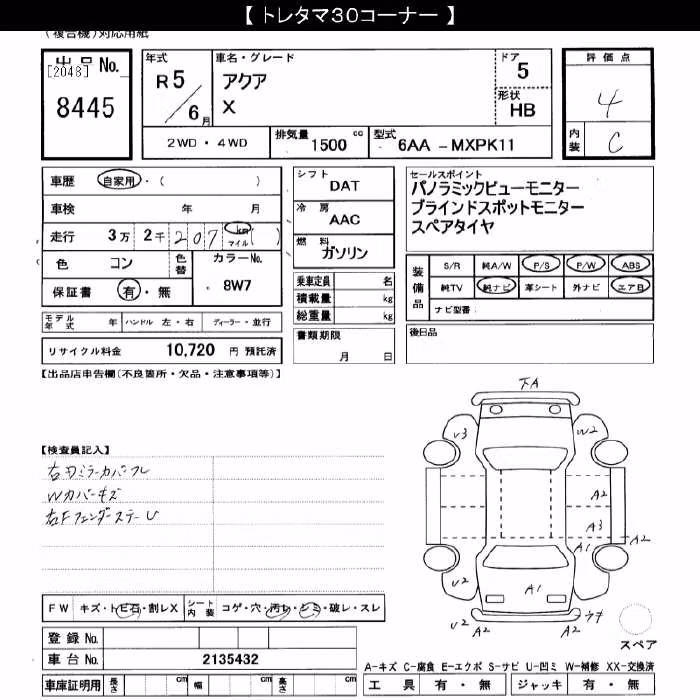 【 トレタマ30コーナー 】
(複合機)対応用紙
出品No.
[2048]
8445
年式
R5/6月
車名・グレード
アクア
X
ドア
5
形状
HB
評価点
4
内装
C
2WD・4WD
排気量 1500 cc
型式 6AA -MXPK11
車歴 自家用・( )
車検 年 月
走行 3万 2千 207 km マイル ( )
色 コン 色替
カラーNo.
8W7
保証書 有・無
シフト
DAT
冷房
AAC
燃料
ガソリン
乗車定員 名
積載量 kg
総重量 kg
書類期限
月 日
セールスポイント
パノラミックビューモニター
ブラインドスポットモニター
スペアタイヤ
装備品
S/R 純A/W P/S P/W ABS
純TV 純ナビ 革シート 外ナビ エアB
ナビ型番
後日品
モデル年式 年 ハンドル 左・右 ディーラー・並行
リサイクル料金 10,720 円 預託済
【出品店申告欄(不良箇所・欠品・注意事項等)】
【検査員記入】
右Dミラーカバーフレ
Wカバーキズ
右FフェンダーステーU
下A
V3
W2
A2
A3
A2
A1
U2
A1
V2
V2
A2
A2
ウキ
スペア
FW キズ・トビ石・割レX
シート内装 コゲ・穴・汚レ・シミ・破レ・スレ
登録No.
車台No. 2135432
車庫証明用 長さ cm 幅 cm 高さ cm
A-キズ C-腐食 E-エクボ S-サビ U-凹ミ W-補修 XX-交換済
工具 有・無 ジャッキ 有・無